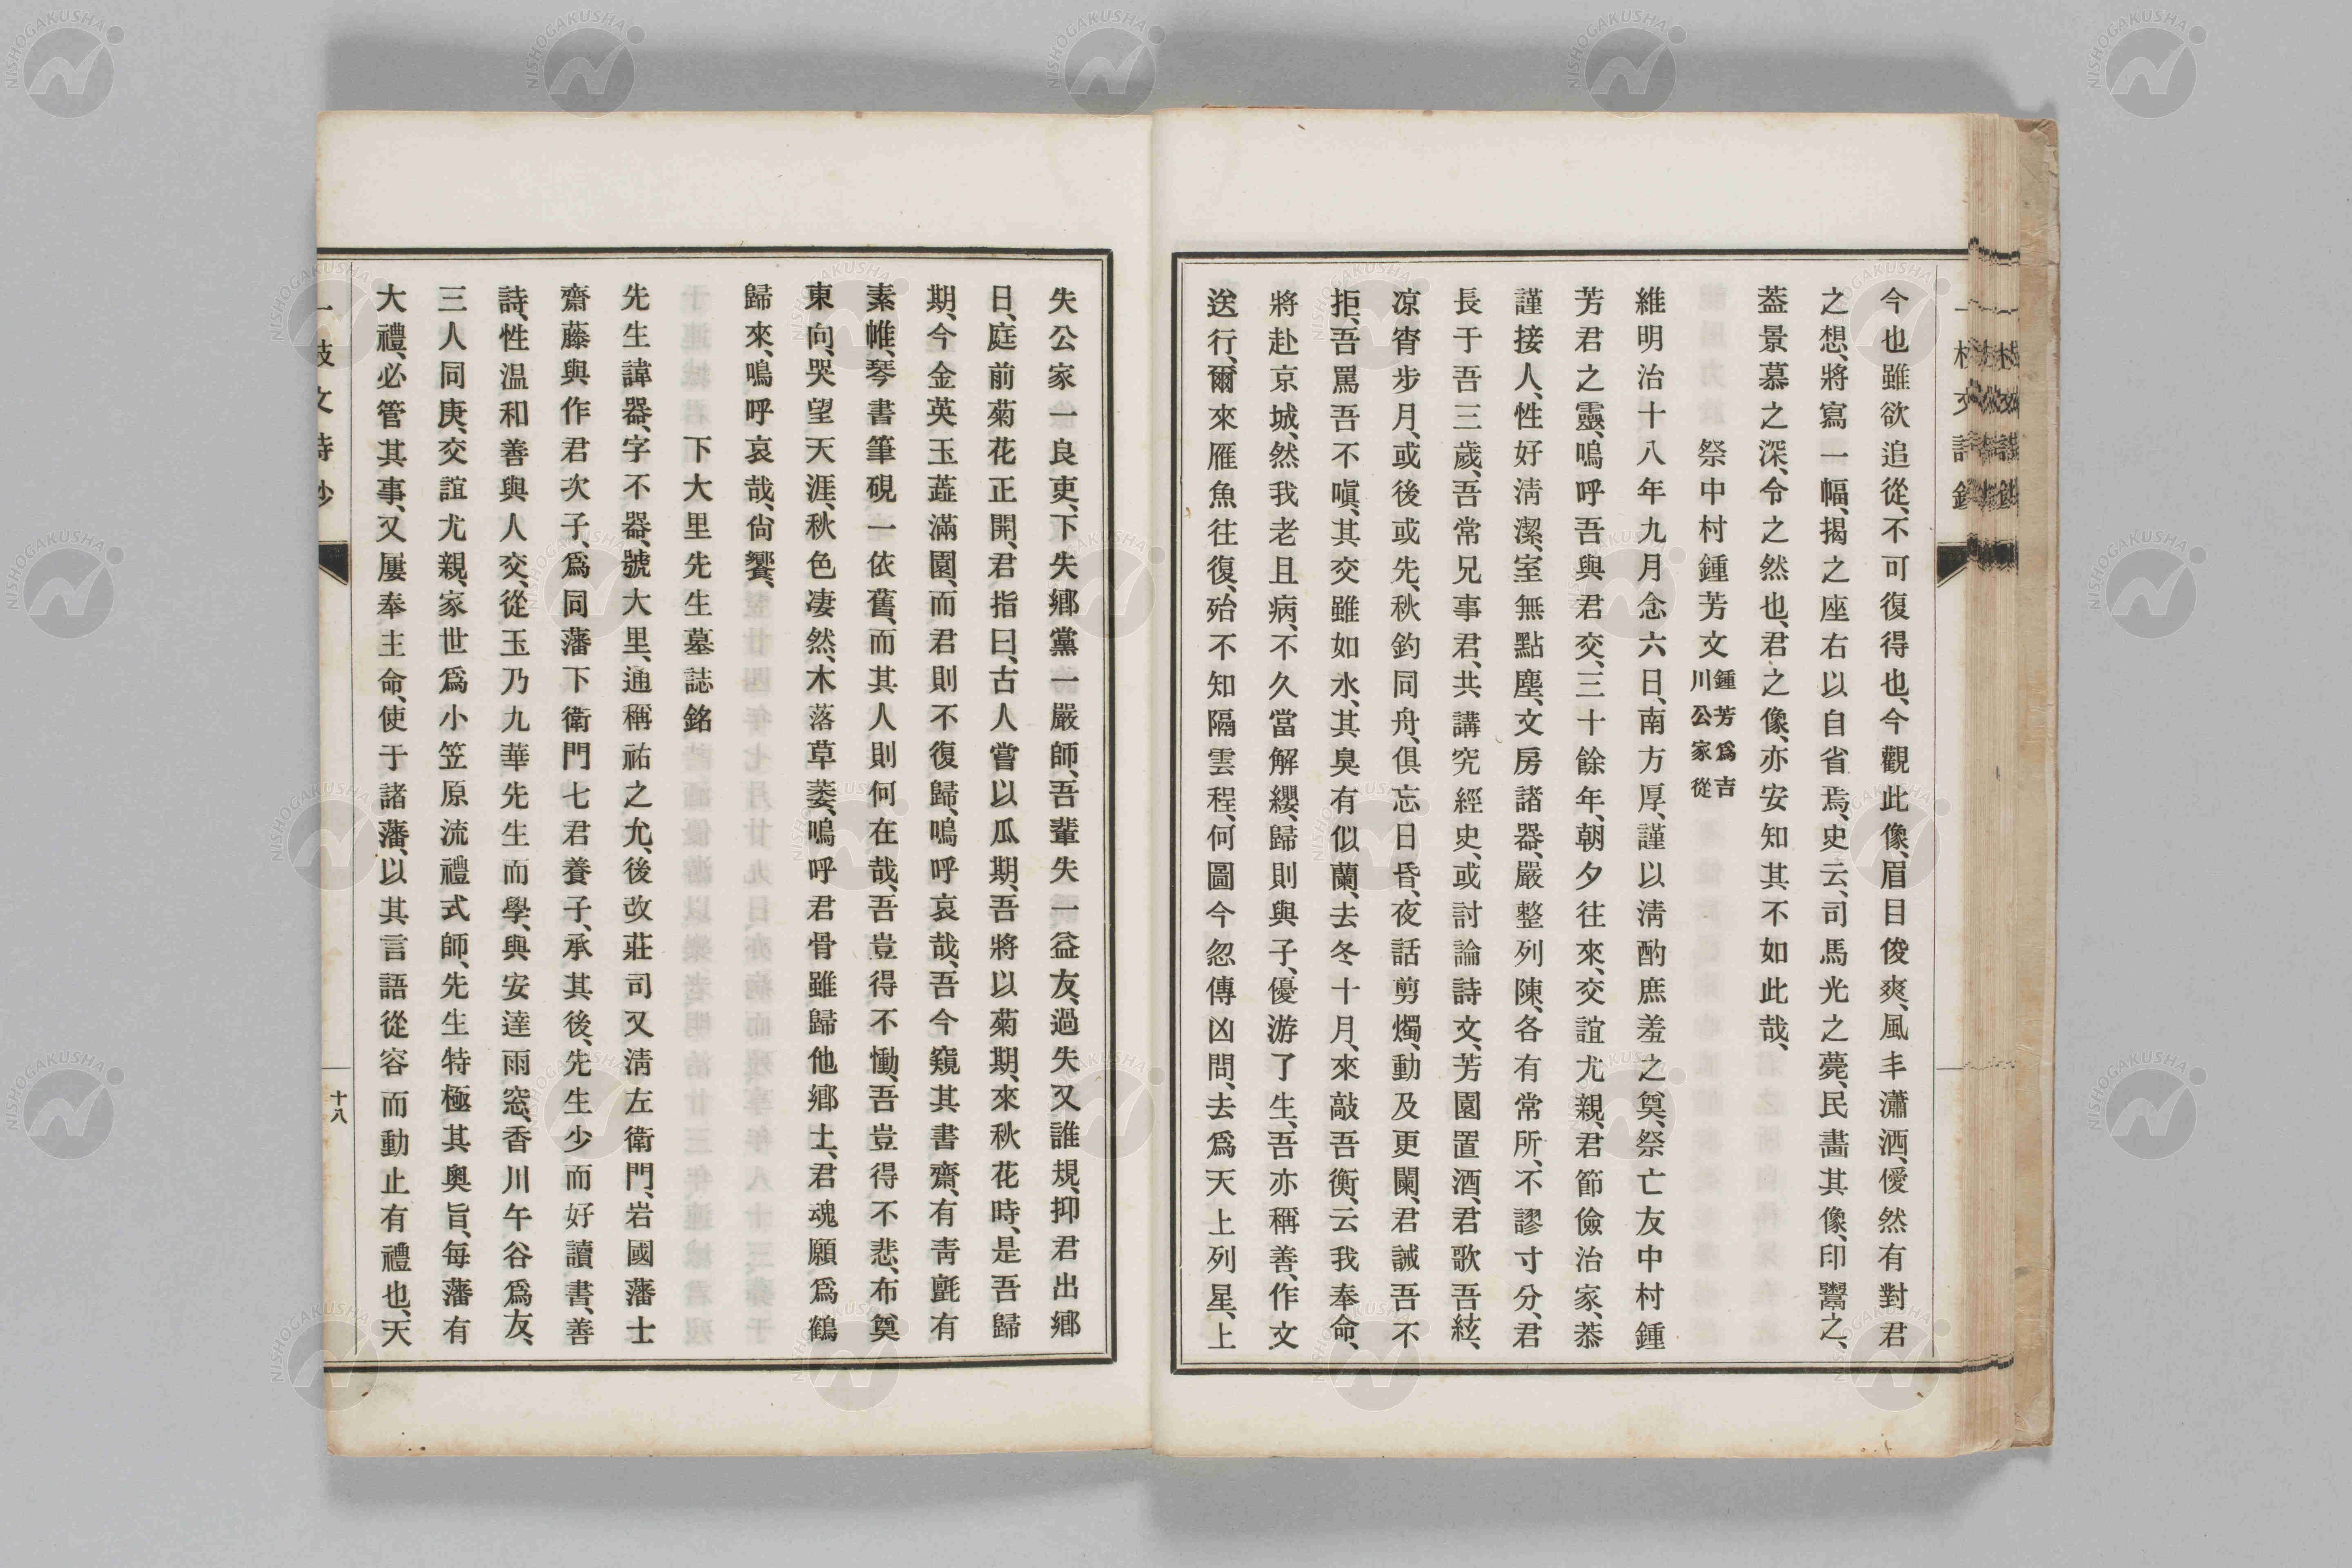 今也雖欲追從、不可復得也、今觀此像、眉目俊爽、風丰瀟洒、僾然有對君
之想、將寫一幅、揭之座右以自省焉、史云、司馬光之薨、民畫其像、印鬻之、
葢景慕之深、令之然也、君之像、亦安知其不如此哉、
祭中村鍾芳文
鍾芳爲吉
川公家從
維明治十八年九月念六日、南方厚、謹以淸酌庶羞之奠、祭亡友中村鍾
芳君之靈、嗚呼吾與君交、三十餘年、朝夕往來、交誼尤親、君節儉治家、恭
謹接人、性好淸潔、室無點塵、文房諸器、嚴整列陳、各有常所、不謬寸分、君
長于吾三歲、吾常兄事君、共講究經史、或討論詩文、芳園置酒、君歌吾絃、
凉宵步月、或後或先、秋釣同舟、俱忘日昏、夜話剪燭、動及更闌、君誡吾不
拒、吾罵吾不嗔、其交雖如水、其臭有似蘭、去冬十月、來敲吾衡、云我奉命、
將赴京城、然我老且病、不久當解纓、歸則與子、優游了生、吾亦稱善、作文
送行、爾來雁魚往復、殆不知隔雲程、何圖今忽傳凶問、去爲天上列星、上
失公家一良吏、下失鄕黨一嚴師、吾輩失一益友、過失又誰規、抑君出鄕
日、庭前菊花正開、君指曰、古人嘗以瓜期、吾將以菊期、來秋花時、是吾歸
期、今金英玉蘂滿園、而君則不復歸、嗚呼哀哉、吾今窺其書齋、有靑氈有
素帷、琴書筆硯一依舊、而其人則何在哉、吾豈得不慟、吾豈得不悲、布奠
東向、哭望天涯、秋色凄然、木落草萎、嗚呼君骨雖歸他鄕土、君魂願爲鶴
歸來、嗚呼哀哉、尙饗、
下大里先生墓誌銘
先生諱器、字不器、號大里、通稱祐之允、後改莊司又淸左衛門、岩國藩士
齋藤與作君次子、爲同藩下衛門七君養子、承其後、先生少而好讀書、善
詩、性温和善與人交、從玉乃九華先生而學、與安達雨窓、香川午谷爲友、
三人同庚、交誼尤親、家世爲小笠原流禮式師、先生特極其奧旨、每藩有
大禮、必管其事、又屢奉主命、使于諸藩、以其言語從容而動止有禮也、天
十八